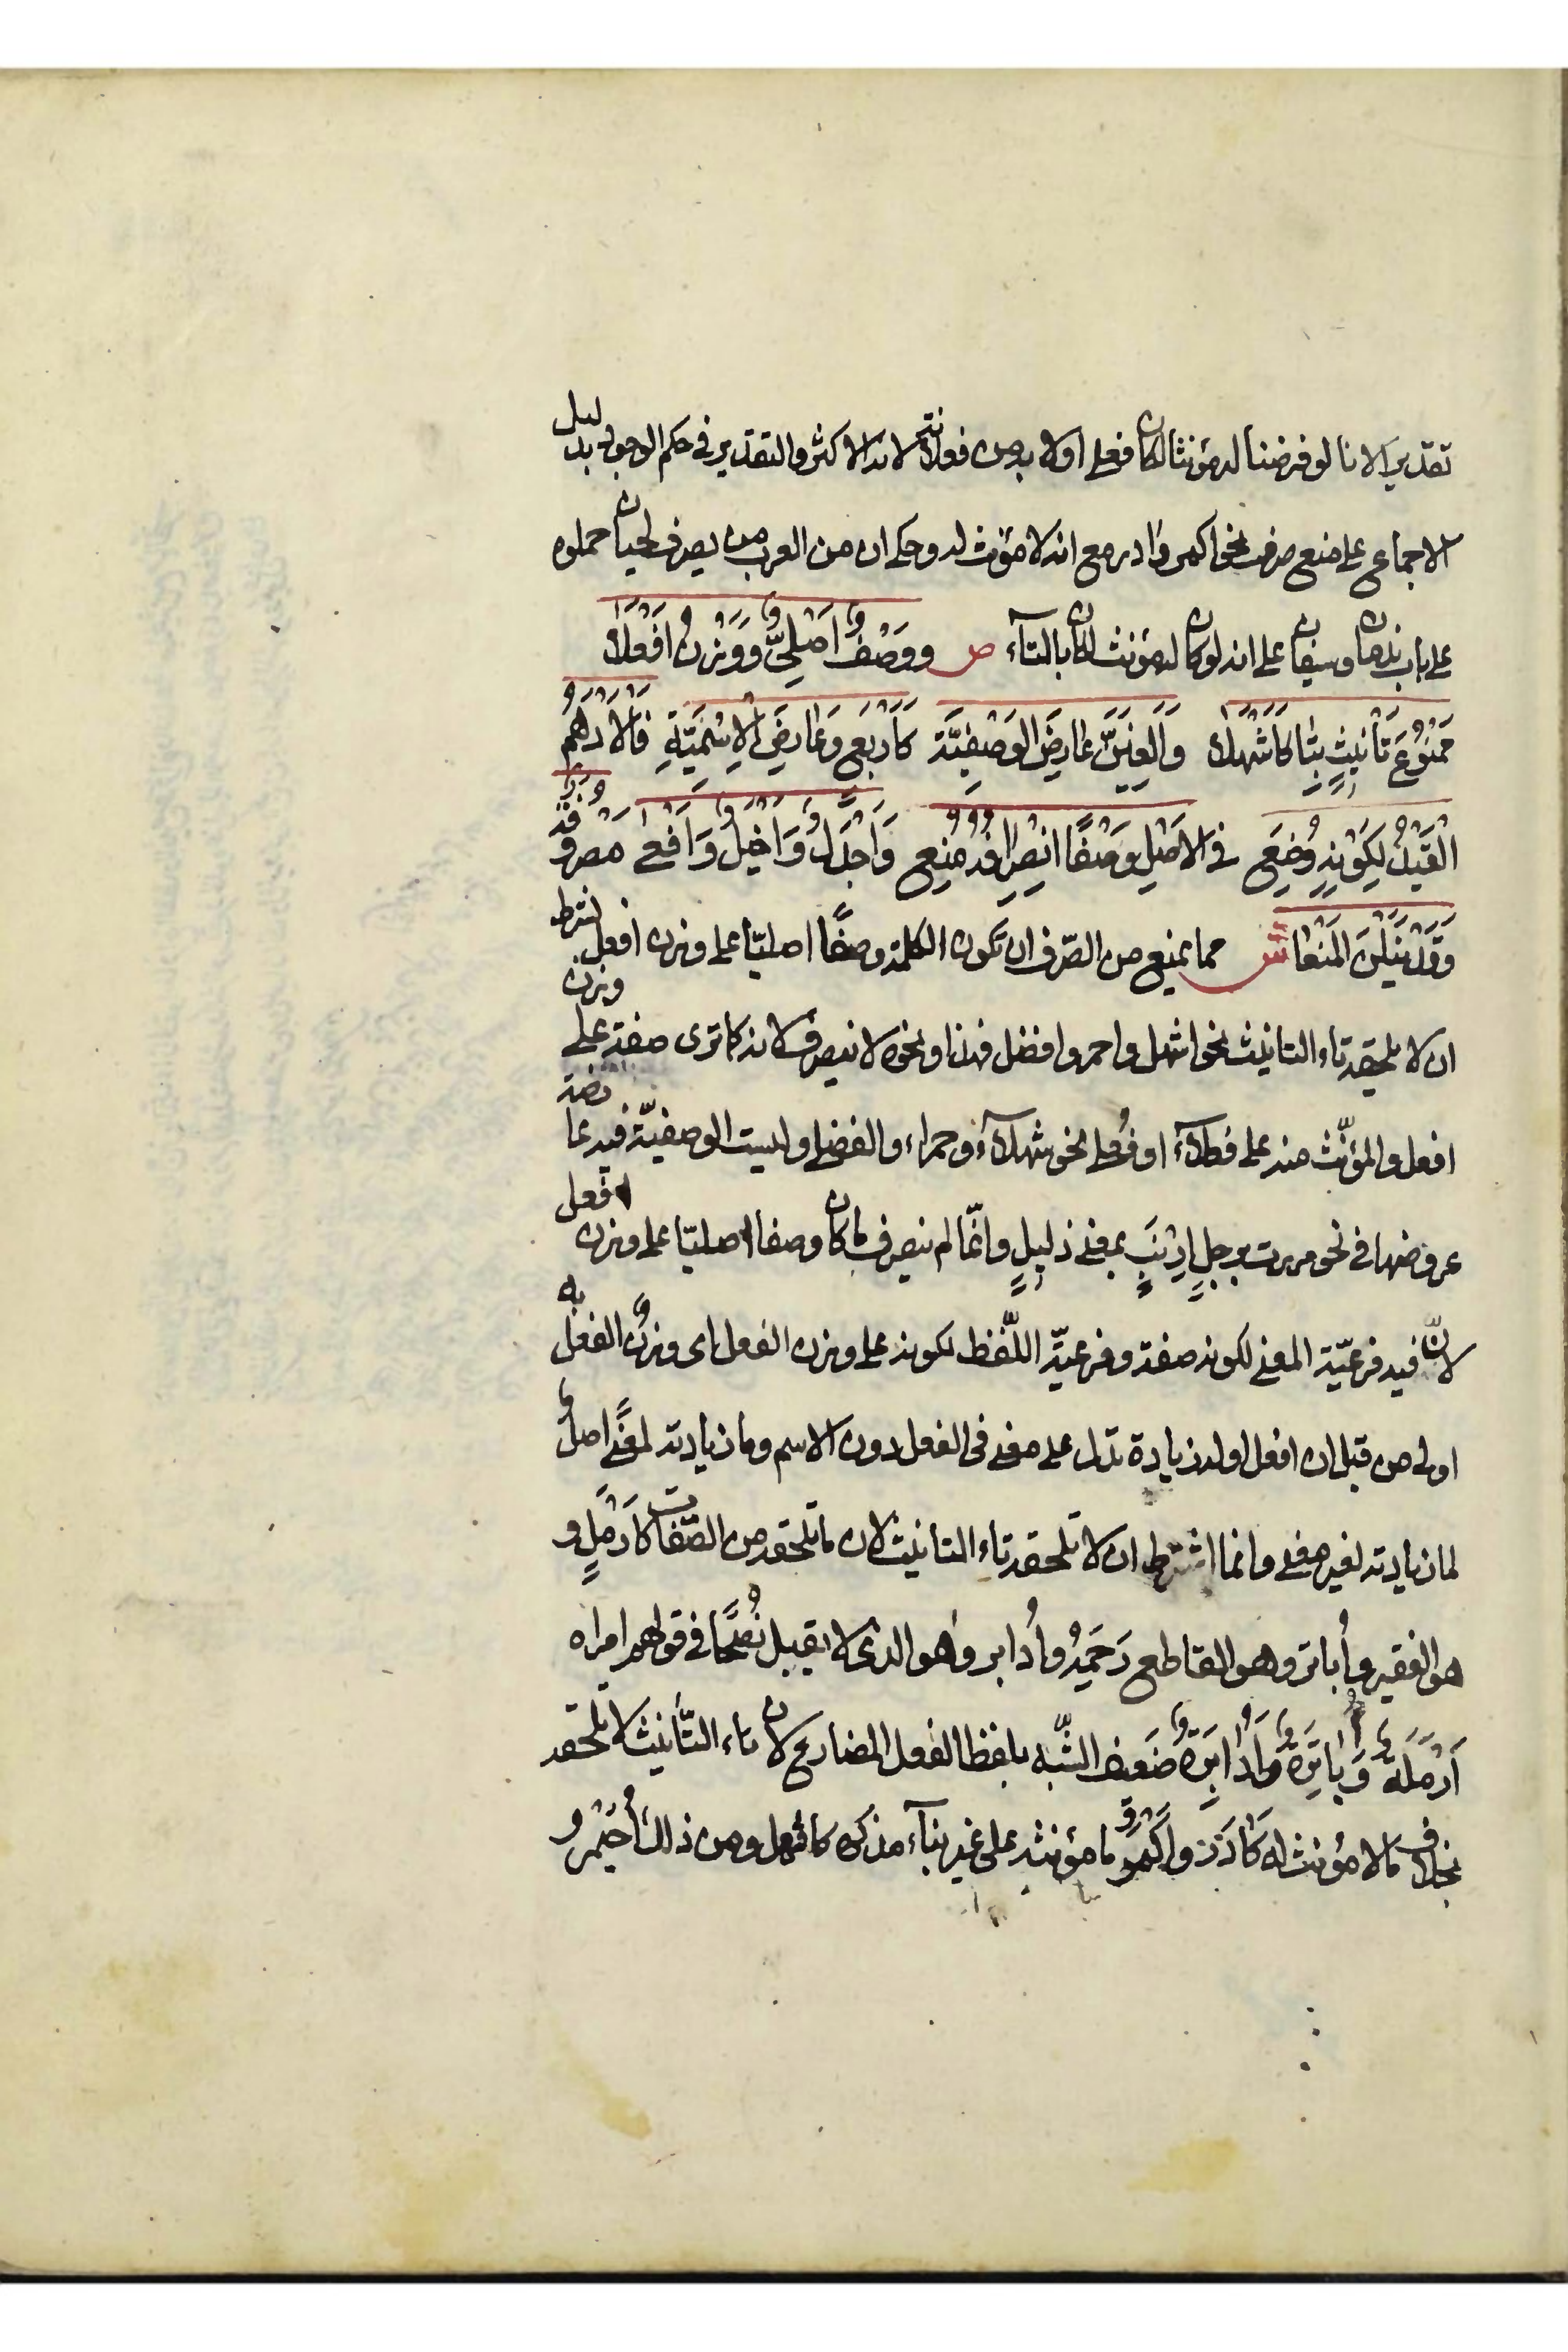 تقديرا لانا لو فرضنا له مؤنثا لكان فعلى اولا به من فعلانة لانه الاكثر والتقدير في حكم الوجود بدليل
الاجماع على منع صرف نحو اكمر وادر مع انه لا مؤنث له وحكى ان من العرب من يصرف لحيان حملوه
على باب ندمان وسيفان على انه لو كان له مؤنث لكان بالتآء ص ووَصْفٌ اَصْلِيٌّ وَوَزْنُ اَفْعَلَا
مَمْنُوعَ تَأنِيثٍ بِتَا كَاَشْهَلَا وَاَلْغِيَنَّ عَارِضَ الوَصْفِيَّة كَاَرْبَعٍ وَعَارِضَ الاِسْمِيَّةِ فَالاَدْهَمُ
القَيْدُ لِكَوْنِهِ وُضِعَ في الاَصْلِ وَصْفًا انْصِرَافُه مُنِع وَاَجْدَلٌ وَاَخْيَلٌ وَاَفْعى مَصْرُوفَةٌ
وَقَدْ يَنَلْنَ المَنْعَا ش مما يمنع من الصّرف ان تكون الكلمة وصفًا اصليّا على وزن افعل بشرط
ان لا يلحقه تاء التانيث نحو اشهل واحمر وافضل فهذا ونحوه لا ينصرف لانه كما ترى صفة على وزن
افعل والمؤنّث منه على فعلآء او فُعلى نحو شهلآء وحمراء والفضلى وليست الوصفيّة فيه عارضة
عروضها في نحو مررت برجلٍ اَرْنَبٍ بمعنى ذليلٍ وانّما لم ينصرف ما كان وصفا اصليّا على وزن افعل
لانّ فيه فرعيّة المعنى لكونه صفة وفرعيّة اللّفظ لكونه على وزن الفعل اى وزنٌ الفعل به
اولى من قبل ان افعل اوله زيادة تدل على معنى في الفعل دون الاسم وما زيادته لمعنًى اصلٌ
لما زيادته لغير معنى وانما اشترط ان لا تلحقه تاء التانيث لان ما تلحقه من الصّفات كاَرْمَلٍ و
هو الفقير واُباتر وهو القاطع رَحِمَهُ واُدابر وهو الذى لا يقبل نُصْحًا في قولهم امراه
اَرْمَلَةٌ وَاُبَاتِرَةٌ واُدَابِرَةٌ ضَعيف الشّبه بلفظ الفعل المضارع لان تاء التّأنيث لا تلحقه
بخلاف مالا مؤنث له كَادَرَ واَكْمَر وما مؤنثه على غير بنآء مذكره كاشهل ومن ذلك اُحَيْمِر و